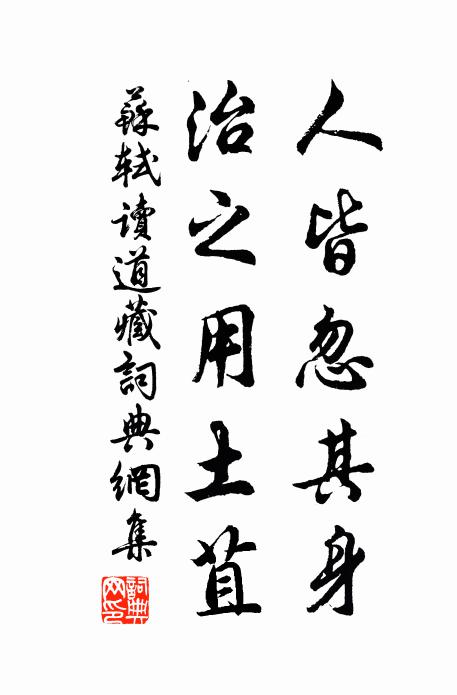 人皆忽其身
治之用土苴
蘇軾讀道藏詞典網集
詞典网印